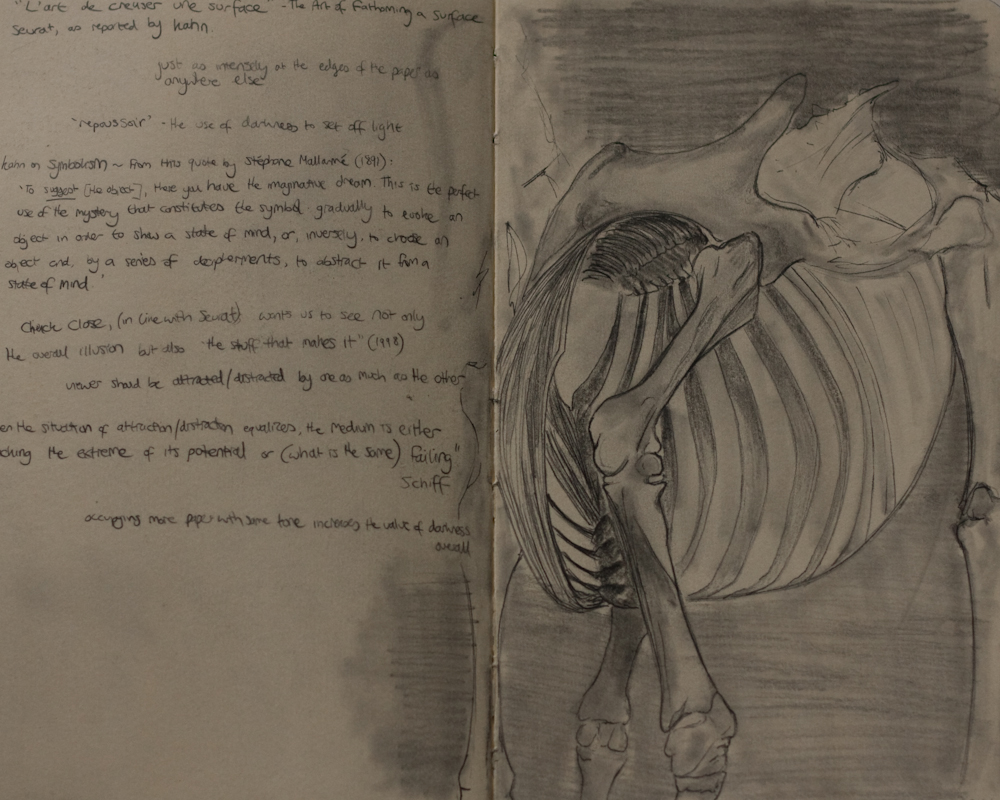 "L'art de creuser une surface" - The Art of Fathoming a surface
Seurat, as reported by Kahn.
just as intensely at the edges of the paper as
anywhere else
'repoussoir' - the use of darkness to set off light
Kahn on Symbolism ~ From this quote by Stéphane Mallarmé (1891):
'To suggest [the object], there you have the imaginative dream. This is the perfect
use of the mystery that constitutes the symbol: gradually to evoke an
object in order to show a state of mind, or, inversely, to choose an
object and, by a series of decipherments, to abstract it from a
state of mind.'
Chuck Close, (in line with Seurat) wants us to see not only
the overall illusion but also "the stuff that makes it" (1998)
viewer should be attracted/distracted by one as much as the other
en the situation of attraction/distraction equalizes, the medium is either
ching the extreme of its potential or (what is the same) failing"
Schiff
occupying more paper with same tone increases the value of darkness
overall